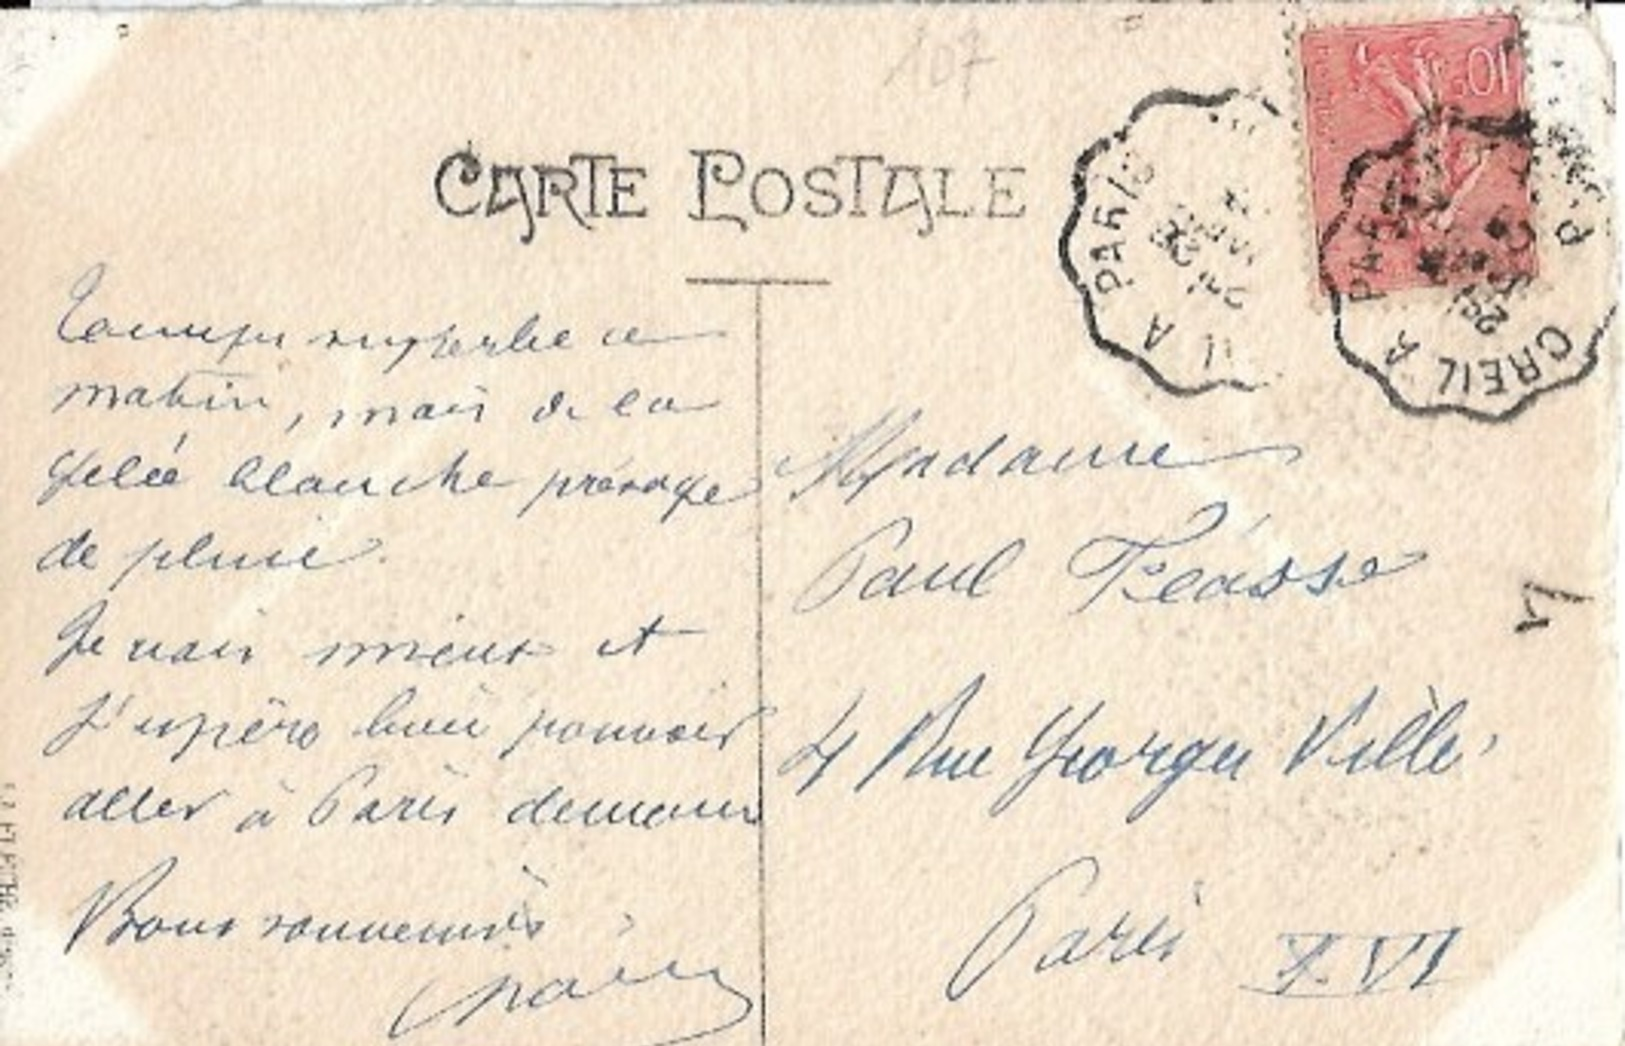 107
CARTE POSTALE
10
CREIL A PARIS
CREIL A PARIS
Temps superbe ce
matin, mais de la
gelée blanche présage
de pluie.
Je vais mieux et
j'espère bien pouvoir
aller à Paris demain
Bons souvenirs
Madame
Paul
4 Rue Georges Ville
Paris XVI